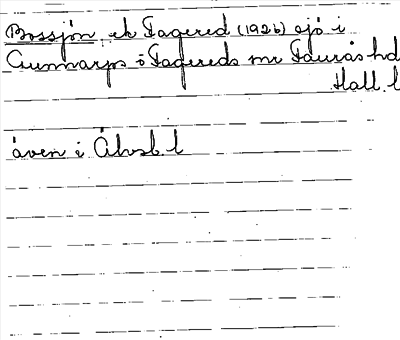 Bossjön ek Fagered (1926) sjö i
Gunnarps o Fagereds snr Faurås hd
Hall. l
även i Älvsb. l